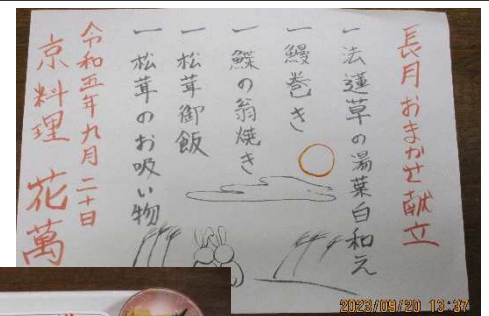 長月おまかせ献立
一 法蓮草の湯葉白和え
一 鰻巻き
一 鰈の翁焼き
一 松茸御飯
一 松茸のお吸い物
令和五年九月二十日
京料理 花萬
2023/09/20 13:37